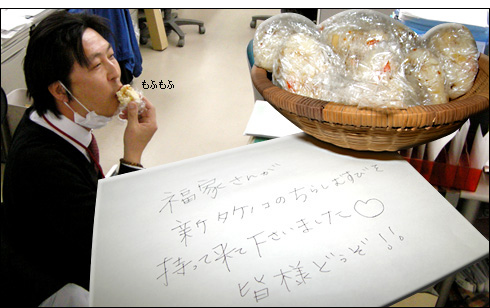 もふもふ
福家さんが
新タケノコのちらしおむすびを
持って来て下さいました♡
皆様どうぞ!!